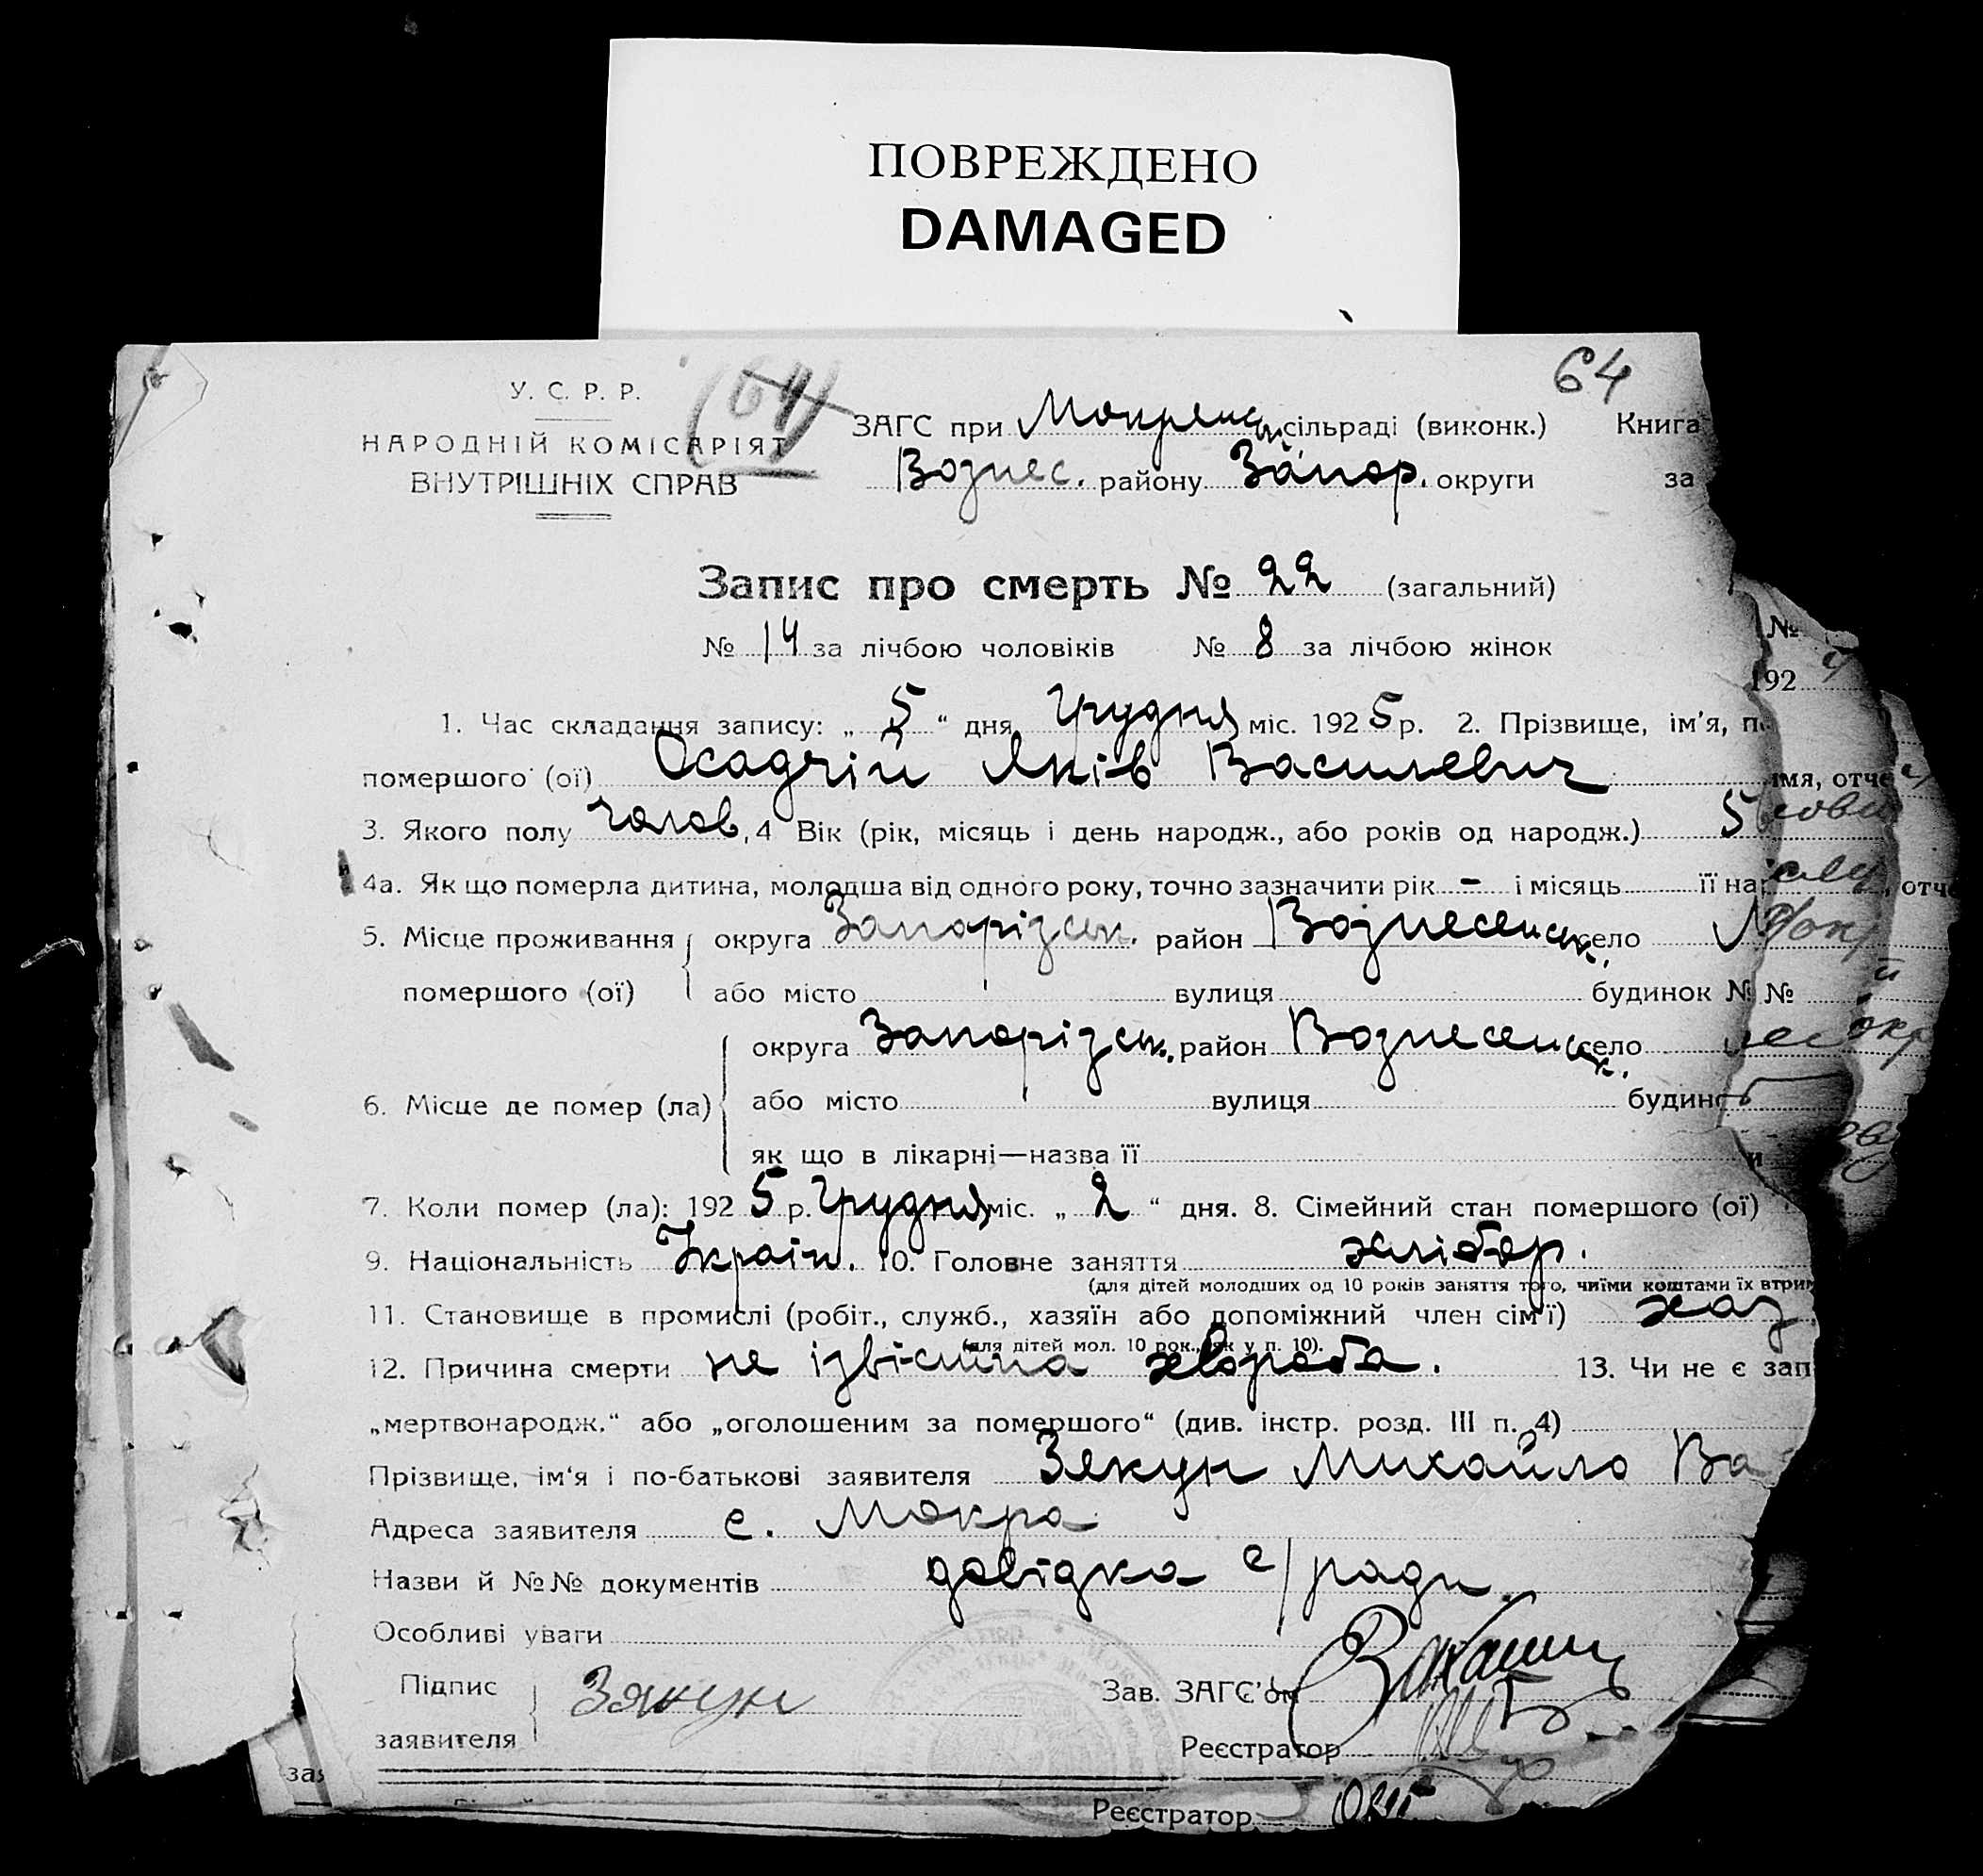 ПОВРЕЖДЕНО
DAMAGED
64
У. С. Р. Р.
НАРОДНІЙ КОМІСАРІЯТ
ВНУТРІШНІХ СПРАВ
(64)
ЗАГС при Мокрянськ сільраді (виконк.) Книга
Вознес. району Запор. округи за
Запис про смерть № 22 (загальний)
№ 14 за лічбою чоловіків № 8 за лічбою жінок
№
192
1. Час складання запису: „ 5 “ дня Грудня міс. 1925 р. 2. Прізвище, ім'я, п
помершого (ої) Осадчій Яків Василевич
імя, отче
3. Якого полу чолов, 4 Вік (рік, місяць і день народж., або років од народж.) 5
4а. Як що померла дитина, молодша від одного року, точно зазначити рік - і місяць її на
, отче
5. Місце проживання округа Запорізськ. район Вознесенськ. село
помершого (ої) або місто вулиця будинок №
№
6. Місце де помер (ла) округа Запорізськ. район Вознесенськ. село
або місто вулиця будин
як що в лікарні—назва її
7. Коли помер (ла): 1925 р. Грудня міс. „ 2 “ дня. 8. Сімейний стан помершого (ої)
9. Національність Україн. 10. Головне заняття хлібор.
(для дітей молодших од 10 років заняття того, чиїми коштами їх втрим
11. Становище в промислі (робіт., служб., хазяїн або допоміжний член сім'ї) хаз
(для дітей мол. 10 рок., як у п. 10).
12. Причина смерти не ізвістна хвороба. 13. Чи не є зап
„мертвонародж.“ або „оголошеним за помершого“ (див. інстр. розд. III п. 4)
Прізвище, ім'я і по-батькові заявителя Зякун Михайло Ва
Адреса заявителя с. Мокра
Назви й №№ документів довідка с/ради.
Особливі уваги
Підпис
заявителя Зякун
Зав. ЗАГС'ом
Реєстратор
зая
Реєстратор